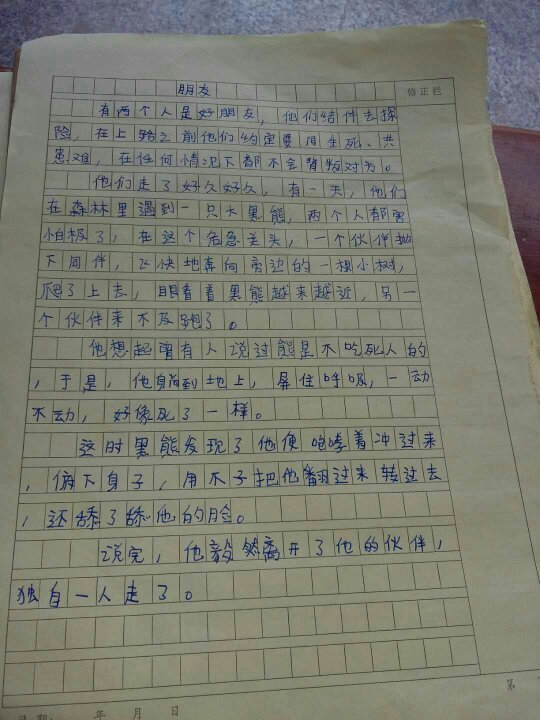 朋友
修正栏
有两个人是好朋友，他们结伴去探
险，在上路之前他们约定要同生死、共
患难，在任何情况下都不会背叛对方。
他们走了好久好久，有一天，他们
在森林里遇到一只大黑熊，两个人都害
怕极了，在这个危急关头，一个伙伴抛
下同伴，飞快地奔向旁边的一棵小树，
爬了上去，眼看着黑熊越来越近，另一
个伙伴来不及跑了。
他想起曾有人说过熊是不吃死人的
，于是，他躺到地上，屏住呼吸，一动
不动，好像死了一样。
这时黑熊发现了他便咆哮着冲过来
，俯下身子，用爪子把他翻过来转过去
，还舔了舔他的脸。
说完，他毅然离开了他的伙伴，
独自一人走了。
第
日期: 年 月 日